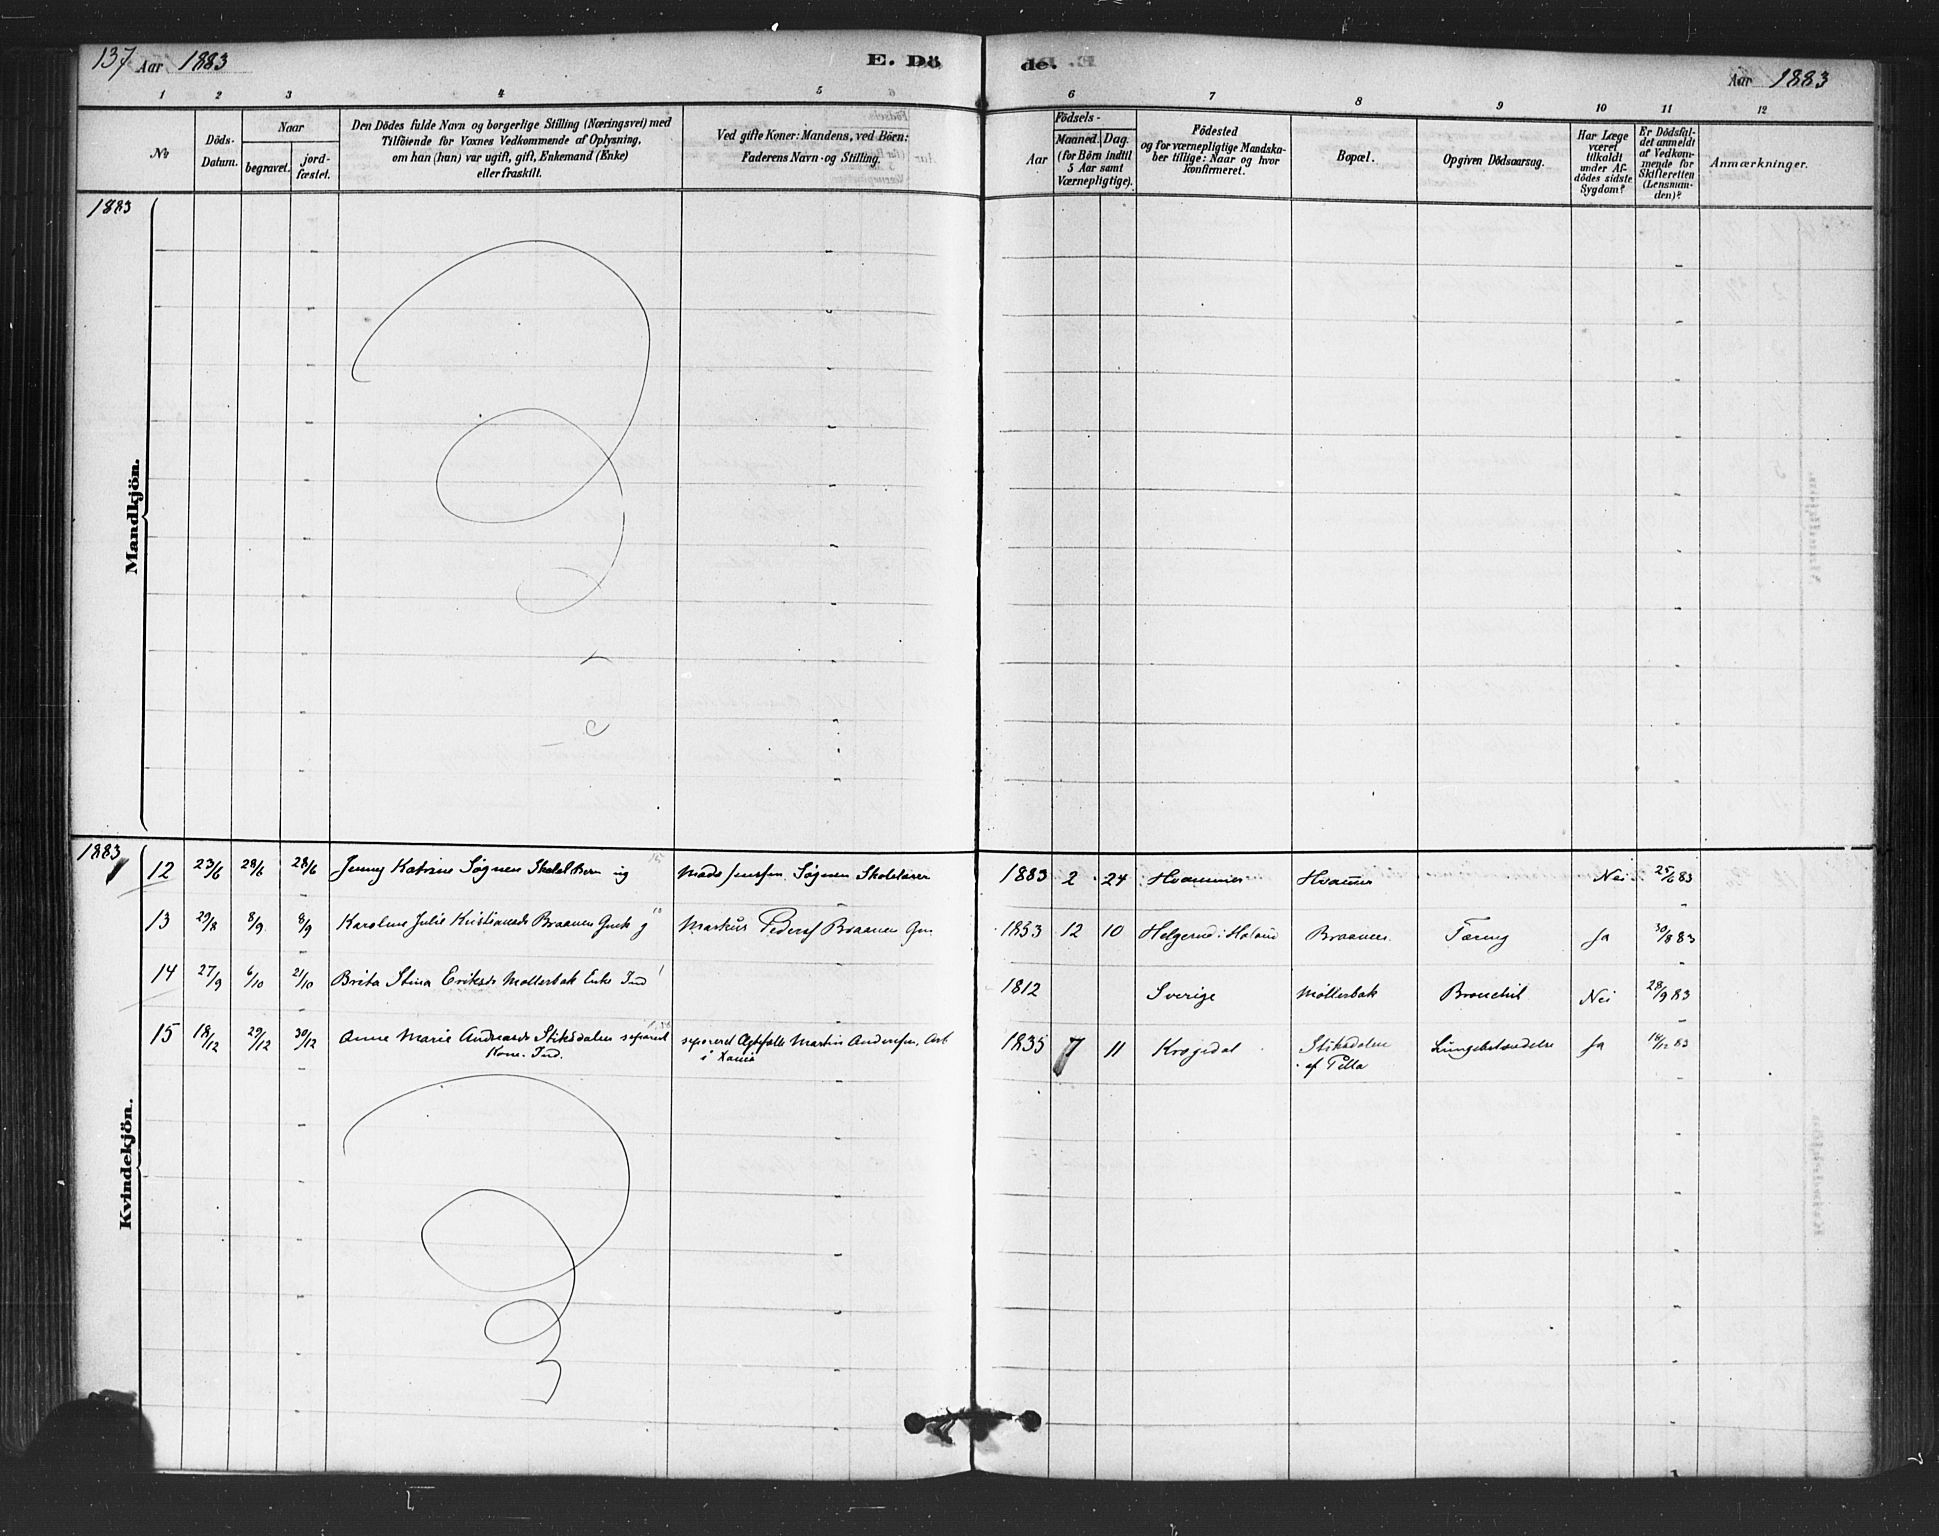 137 Aar 1883 E. Dö
de. Aar 1883
1 2 3 4 5 6 7 8 9 10 11 12
No
Döds-
Datum.
Naar
begravet.
jord-
fæstet.
Den Dödes fulde Navn og borgerlige Stilling (Næringsvei) med
Tilföiende for Voxnes Vedkommende af Oplysning,
om han (hun) var ugift, gift, Enkemand (Enke)
eller fraskilt.
Ved gifte Koner: Mandens, ved Börn:
Faderens Navn og Stilling.
Födsels-
Aar
Maaned. Dag.
(for Börn indtil
5 Aar samt
Værnepligtige).
Födested
og for værnepligtige Mandska-
ber tillige: Naar og hvor
konfirmeret.
Bopæl.
Opgiven Dödsaarsag.
Har Læge
været
tilkaldt
under Af-
dödes sidste
Sygdom?
Er Dödsfal-
det anmeldt
af Vedkom-
mende for
Skifteretten
(Lensman-
den)?
Anmærkninger.
1883
Mandkjön.
1883
Kvindekjön.
12 23/6 28/6 28/6 Jenny Katrine Søgnen ug Mads Jenssen Søgnen Skolelærer 1883 2 24 Nei 25/6 83
13 29/8 8/9 8/9 Karoline Julie Braanen g Markus Pedersf Braanen 1853 12 10 Helgerud i Braanen Tæring Ja 30/8 83
14 27/9 6/10 21/10 Brita Stina Eriksd Møllerbak Enke Ind 1812 Sverige Møllerbak Nei 28/9 83
15 18/12 29/12 30/12 Anne Marie Andreasd Stiksdalen separeret separeret Martin Andersen, Arb 1835 7 11 Krogedal Stiksdalen Lungebetændelse Ja
Kone. Ind. i af